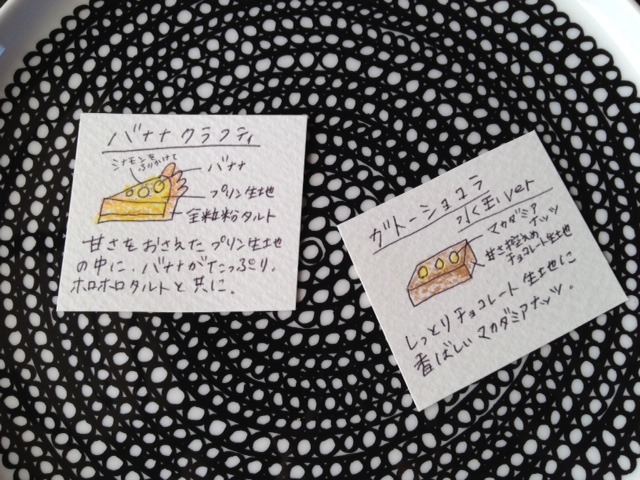 バナナクラフティ
シナモンをふりかけて
バナナ
プリン生地
全粒粉タルト
甘さをおさえたプリン生地
の中に、バナナがたっぷり。
ホロホロタルトと共に。
ガトーショコラ
水玉ver
マカダミア
ナッツ
甘さ控えめ
チョコレート生地
しっとりチョコレート生地に
香ばしいマカダミアナッツ。